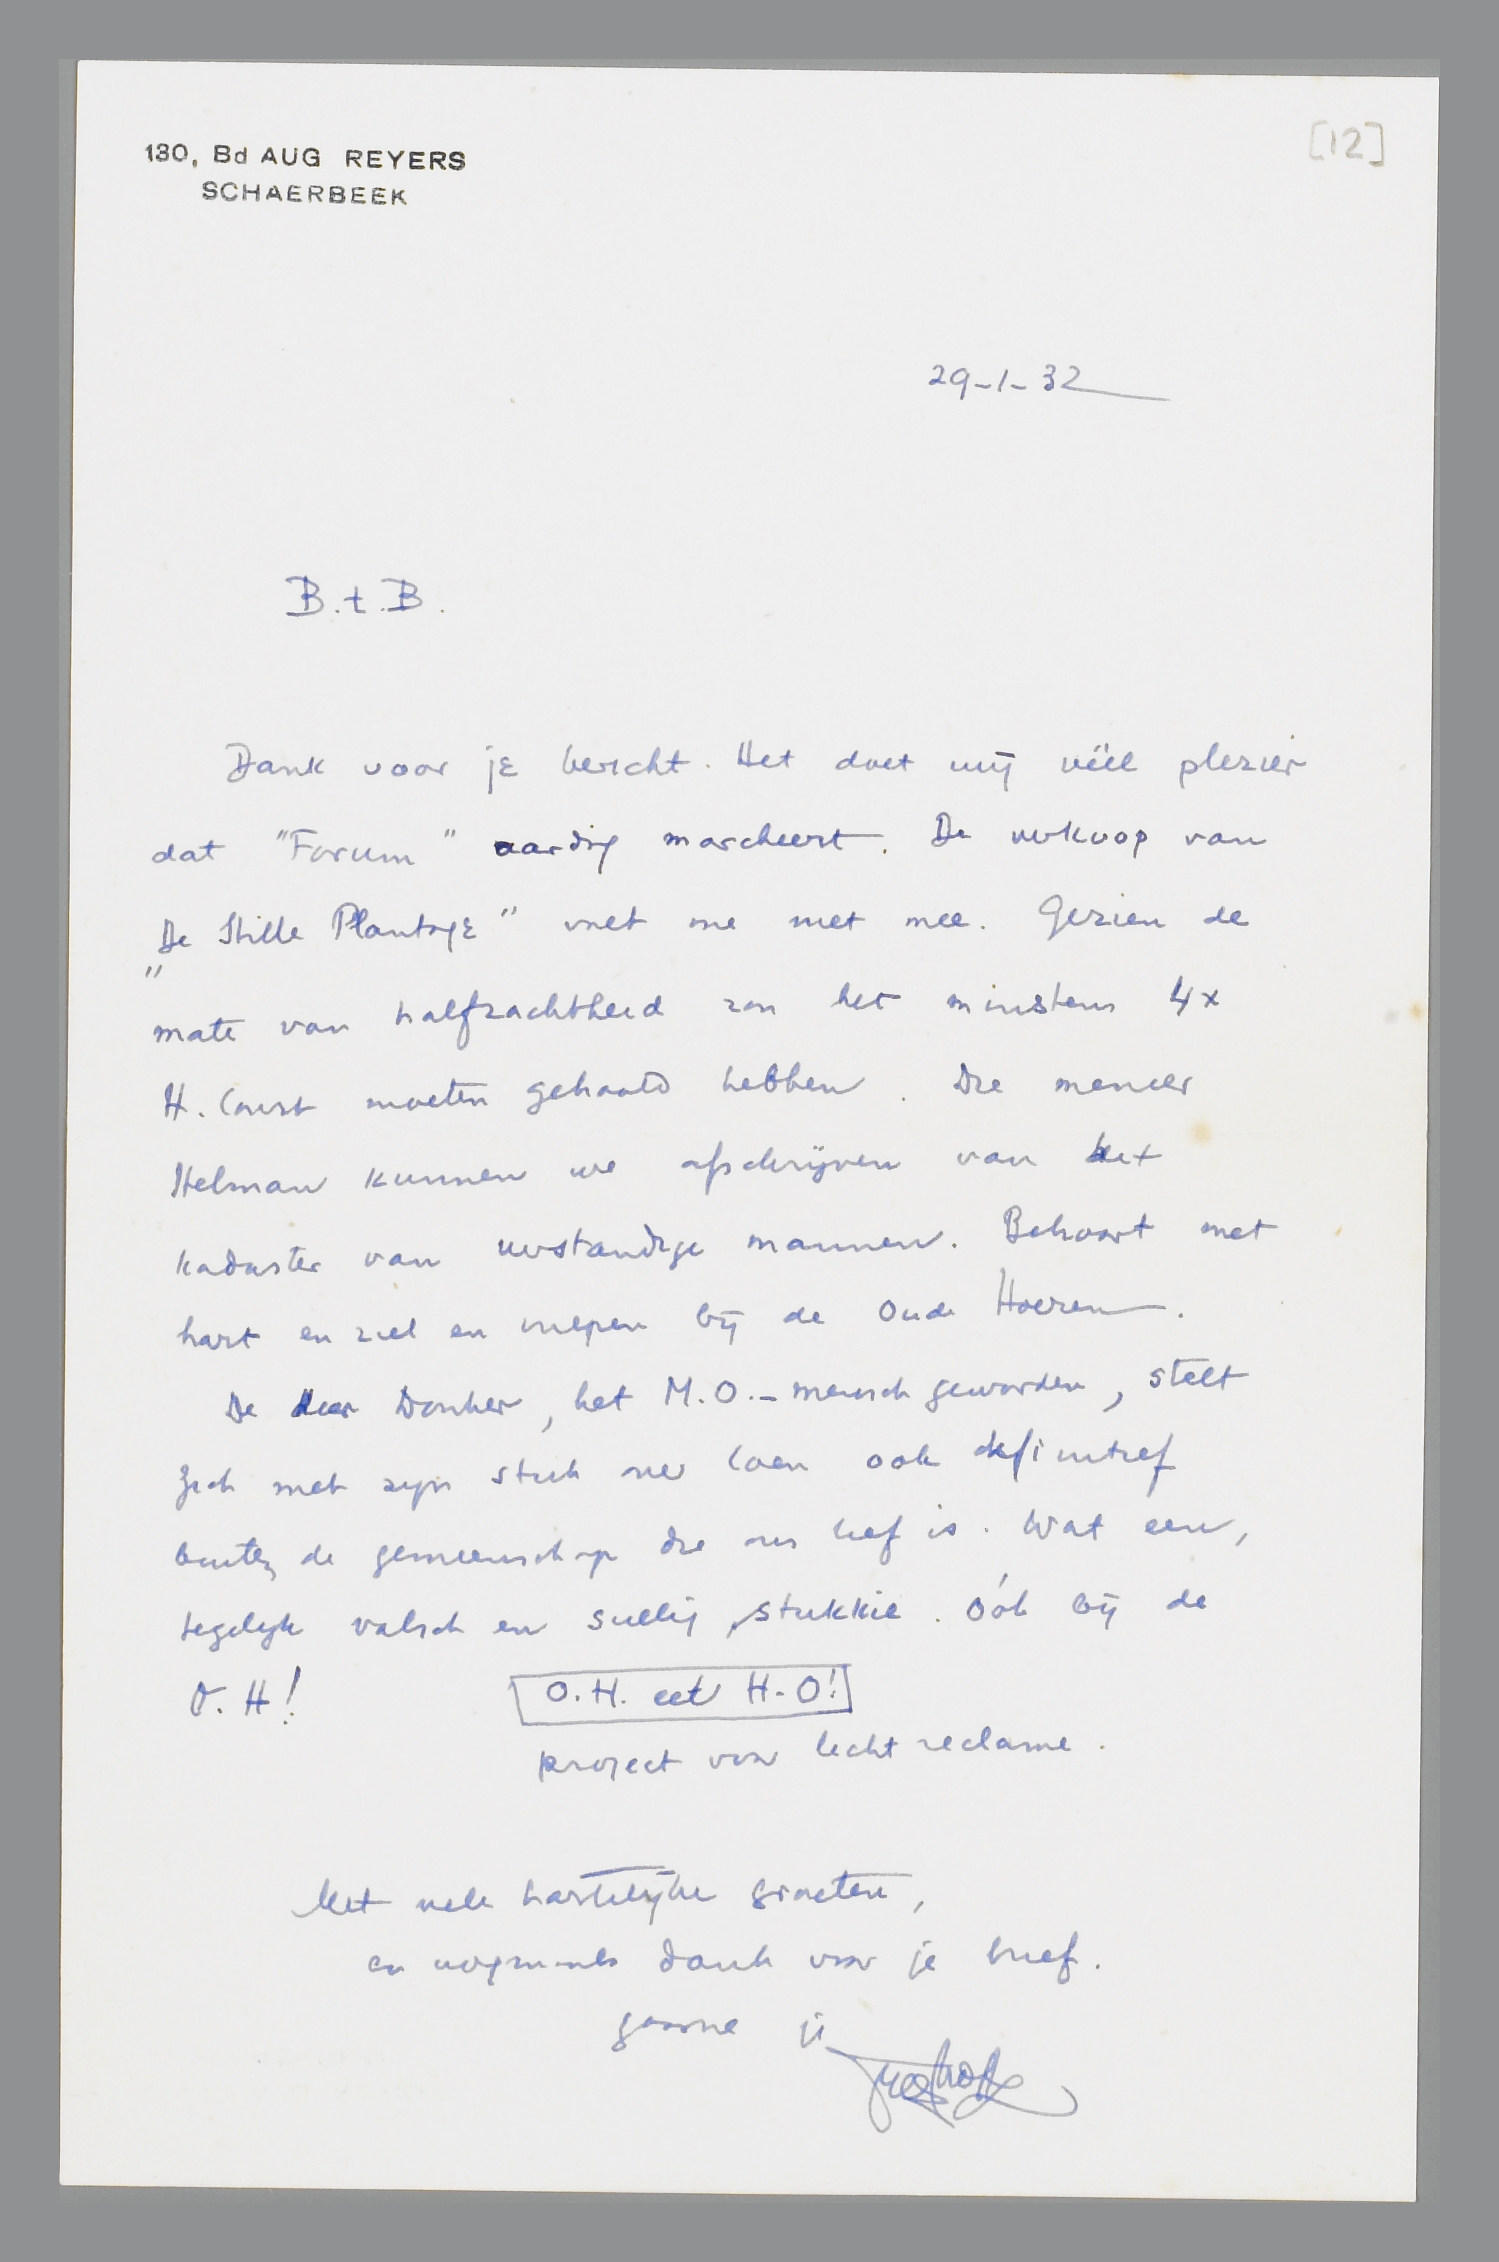 130, Bd AUG REYERS
SCHAERBEEK
[12]
29-1-32
B.t.B.
Dank voor je bericht. Het doet mij véél plezier
dat "Forum" aardig marcheert. De verkoop van
"De Stille Plantage" valt me niet mee. Gezien de
mate van halfzachtheid zou het minstens 4x
H. Court moeten gehaald hebben. Die meneer
Helman kunnen we afschrijven van het
kadaster van verstandige mannen. Behoort met
hart en ziel en bij de Oude Hoeren.
De heer Donker, het M.O.-mensch geworden, stelt
zich met zijn stuk over Coen ook definitief
buiten de gemeenschap die ons lief is. Wat een,
tegelijk valsch en sullig, stukkie. Oók bij de
O.H!
O.H. eet H-O!
project voor licht reclame.
Met vele hartelijke groeten,
en nogmaals dank voor je brief.
gaarne je